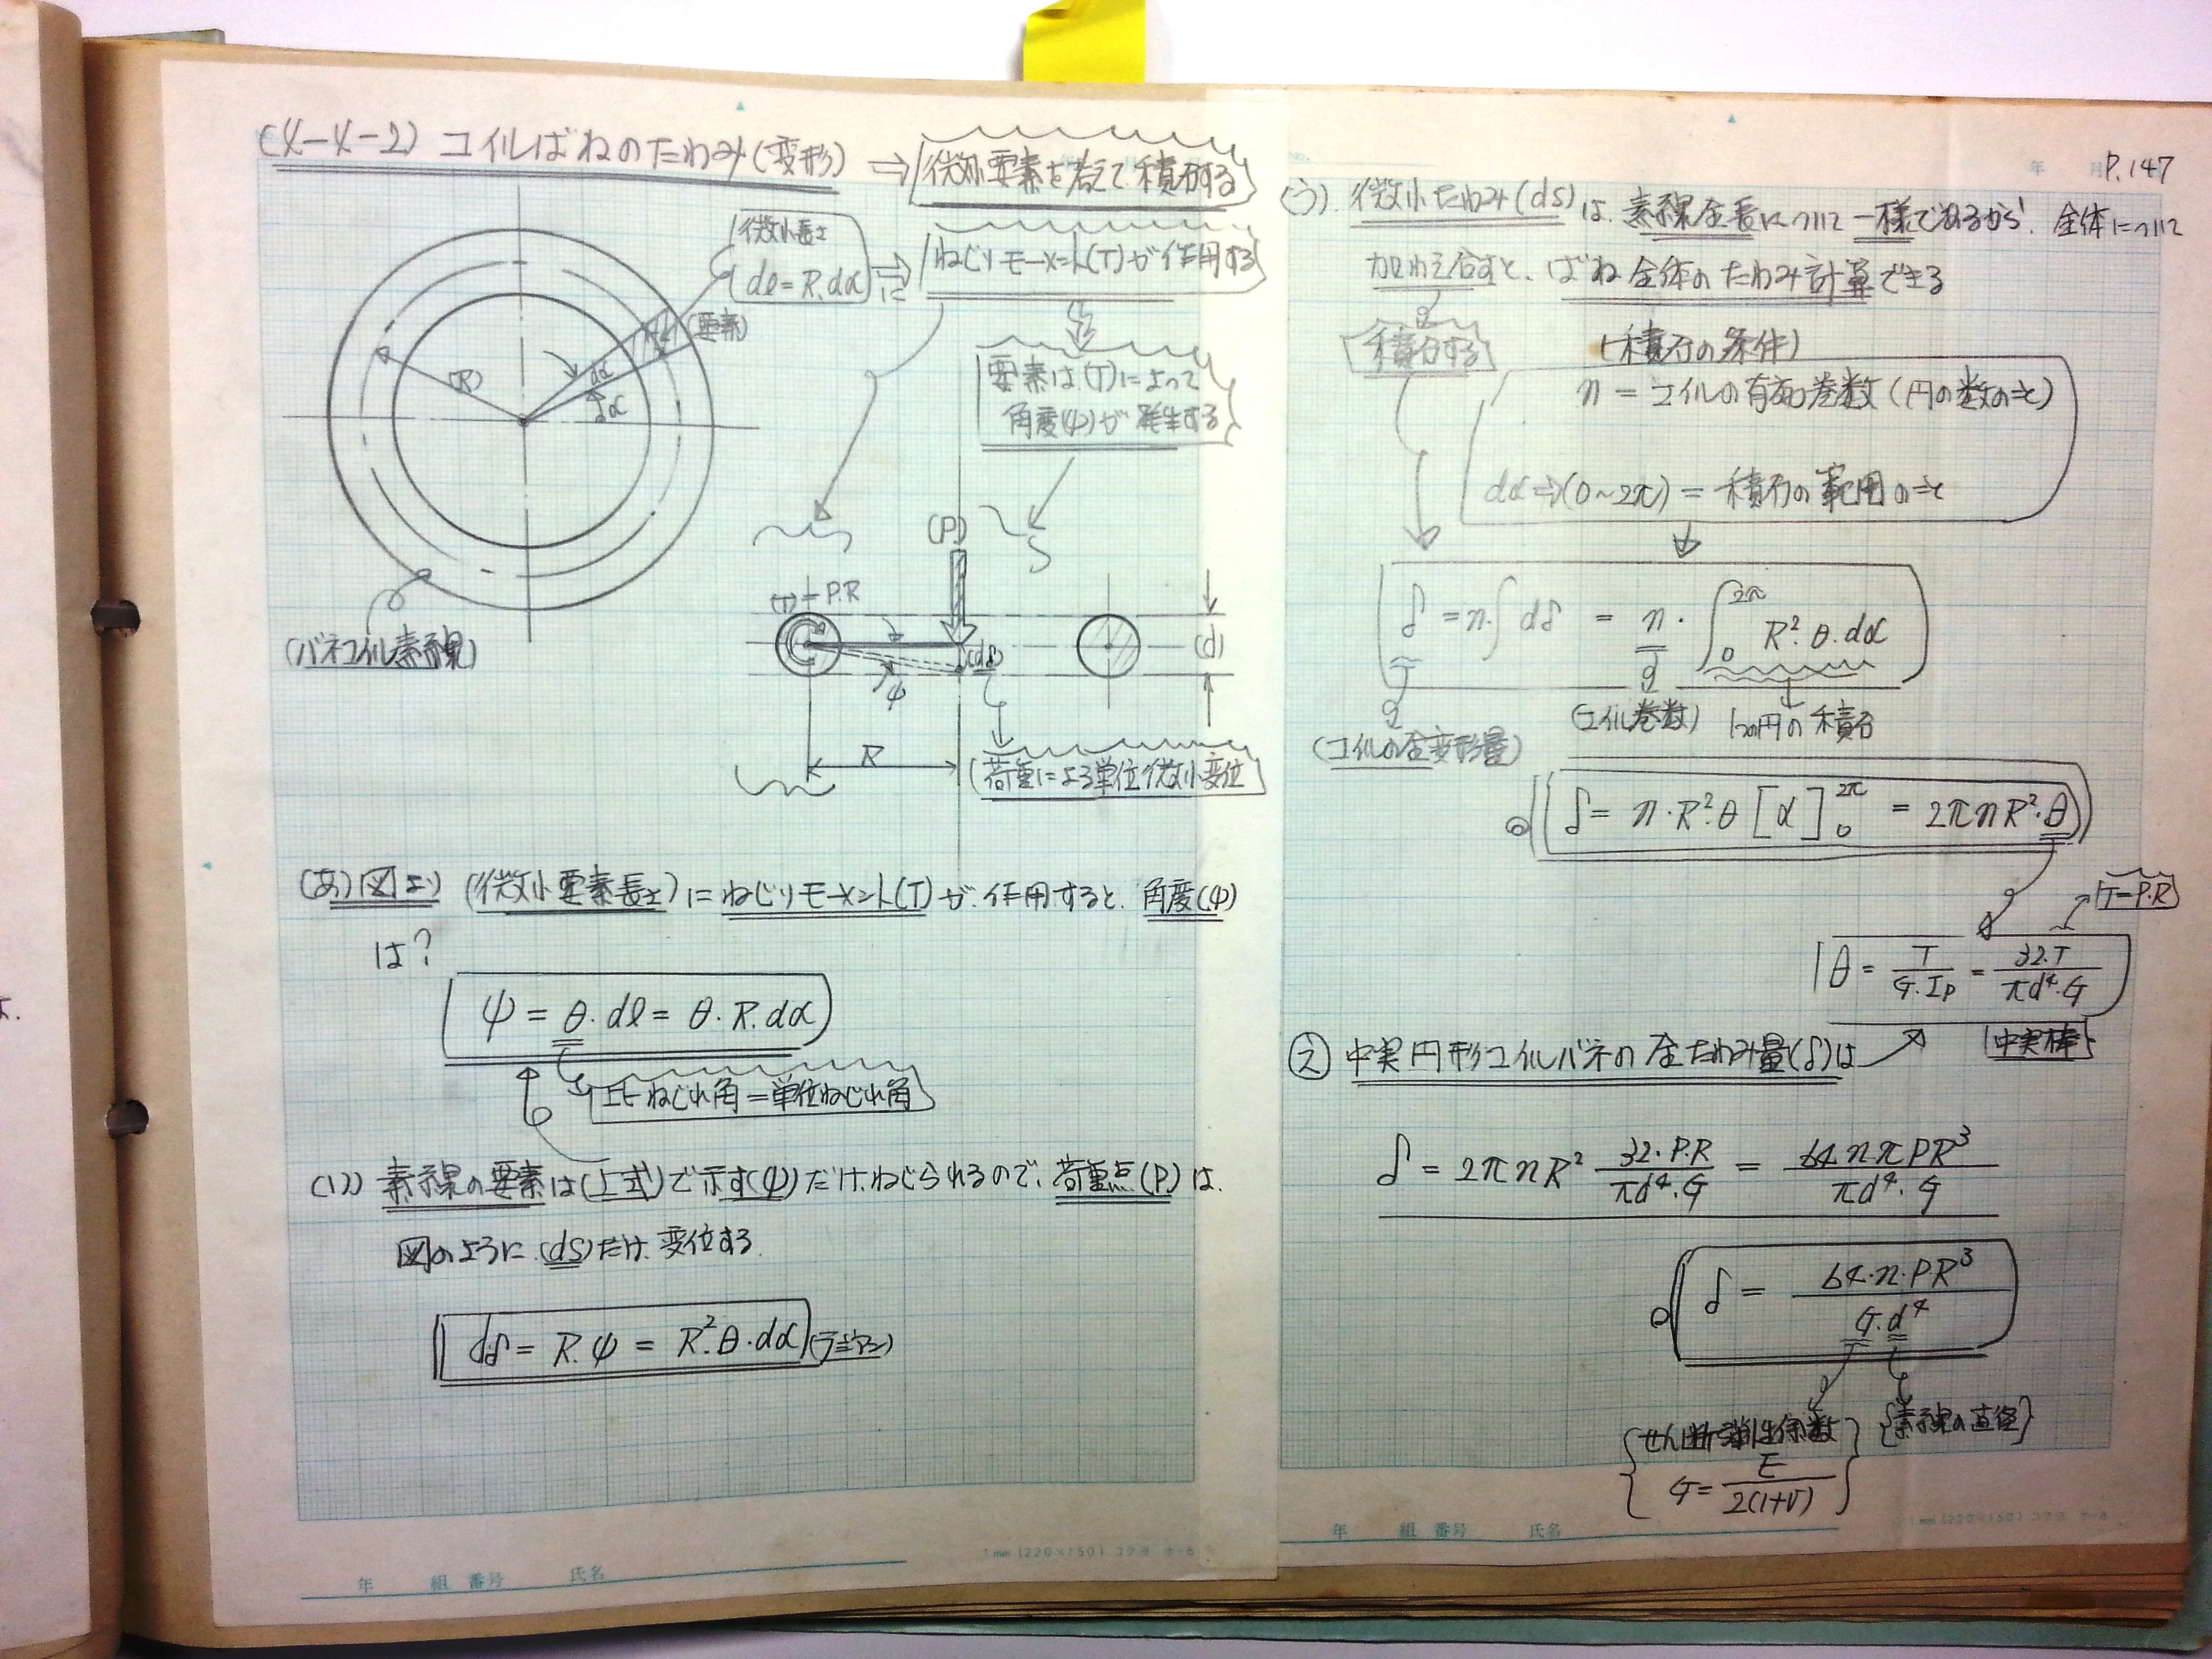 (4-4-2) コイルばねのたわみ(変形) ⇒ 微小要素を考えて積分する
微小長さ
dℓ=R.dα
⇒に
ねじりモーメント(T)が作用する
(要素)
(R)
dα
α
要素は(T)によって
角度(ψ)が発生する
(バネコイル素線)
(P)
(T)=P.R
(dδ)
ψ
(d)
R
荷重による単位微小変位
(あ)図より (微小要素長さ)にねじりモーメント(T)が作用すると、角度(ψ)
は?
ψ = θ.dℓ = θ.R.dα
比ねじれ角=単位ねじれ角
(い) 素線の要素は(上式)で示す(ψ)だけねじられるので、荷重点(P)は、
図のように(dδ)だけ変位する.
dδ = R.ψ = R².θ.dα (ラジアン)
年 組 番号 氏名
1mm (220×150) コクヨ ホ-6
年 月 P.147
(う). 微小たわみ(dδ)は、素線全長について一様であるから、全体について
加わえ合すと、ばね全体のたわみ計算できる
積分する
(積分の条件)
n = コイルの有効巻数 (円の数のこと)
dα⇒(0~2π) = 積分の範囲のこと
δ = n.∫dδ = n.∫₀²π R².θ.dα
(コイル巻数) 1つの円の積分
(コイルの全変形量)
δ = n.R².θ [α]₀²π = 2πnR².θ
T=P.R
θ = T/G.Ip = 32.T/πd⁴.G
中実棒
(え) 中実円形コイルバネの全たわみ量(δ)は
δ = 2πnR² 32.P.R/πd⁴.G = 64nπPR³/πd⁴.G
δ = 64.n.PR³/G.d⁴
せん断弾性係数
G = E/2(1+ν)
素線の直径
年 組 番号 氏名
1mm (220×150) コクヨ ホ-6